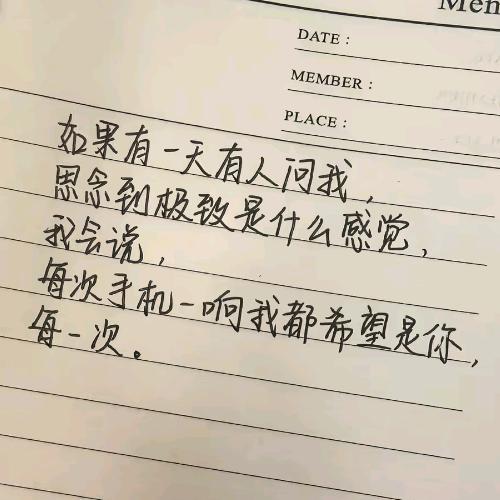 Mem
DATE：
MEMBER：
PLACE：
如果有一天有人问我，
思念到极致是什么感觉，
我会说，
每次手机一响我都希望是你，
每一次。